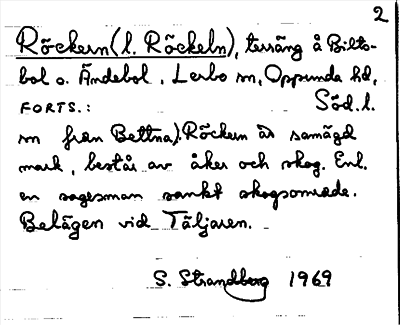 2
Röckern (l. Röckeln), terräng å Bilts-
bol o. Ändebol, Lerbo sn, Oppunda hd,
FORTS.: Söd.l.
sn från Bettna). Röckern är samägd
mark, består av åker och skog. Enl.
en sagesman sankt skogsområde.
Belägen vid Täljaren.
S. Strandberg 1969